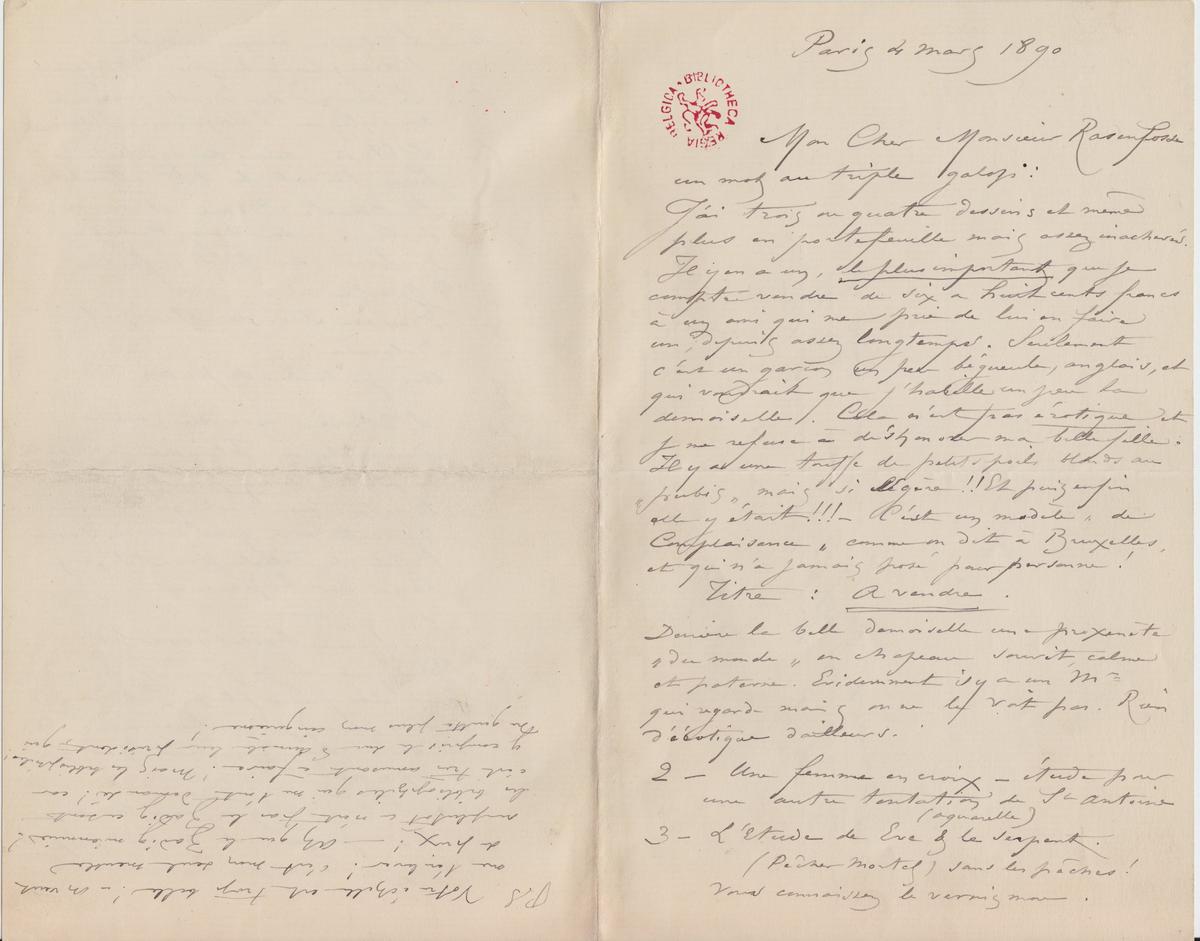 Paris 4 mars 1890
BIBLIOTHECA REGIA BELGICA
Mon Cher Monsieur Rassenfosse
un mot au triple galop :
J'ai trois ou quatre dessins et même
plus en portefeuille mais assez inachevés.
Il y en a un, le plus important que je
compte vendre de six a huit cents francs
à un ami qui me prie de lui en faire
un, depuis assez longtemps. Seulement
c'est un garçon un peu bégueule, anglais, et
qui voudrait que j'habille un peu la
demoiselle). Cela n'est pas érotique et
je me refuse à déshonorer ma belle fille.
Il y a une touffe de petits poils blonds au
„pubis„ mais si légère !! Et puis enfin
elle y était !!! – C'est un modèle „ de
Complaisance „ comme on dit à Bruxelles,
et qui n'a jamais posé pour personne !
Titre : A vendre .
Derrière la belle demoiselle une proxenète
„du monde „ en chapeau sourit, calme
et paterne. Evidemment il y a un Mr
qui regarde mais on ne le voit pas. Rien
d'érotique d'ailleurs.
2 – Une femme en croix – étude pour
une autre tentation de St Antoine
(aquarelle)
3 – L'Etude de Eve & le serpent.
(Pêcher Mortel) sans les pêches !
Vous connaissez le vernis mou .
P.S Votre échelle est trop belle ! – On veut
me l'enlever ! c'est mon seul meuble
de prix ! – Ah que le Zadig
n'est pas le Zadig
les bibliophiles qui me l'ont demandé ! car
c'est très amusant à faire ! Mais les bibliophiles !
y compris le duc d'Aumale leur président, qui
ne quitte plus mon